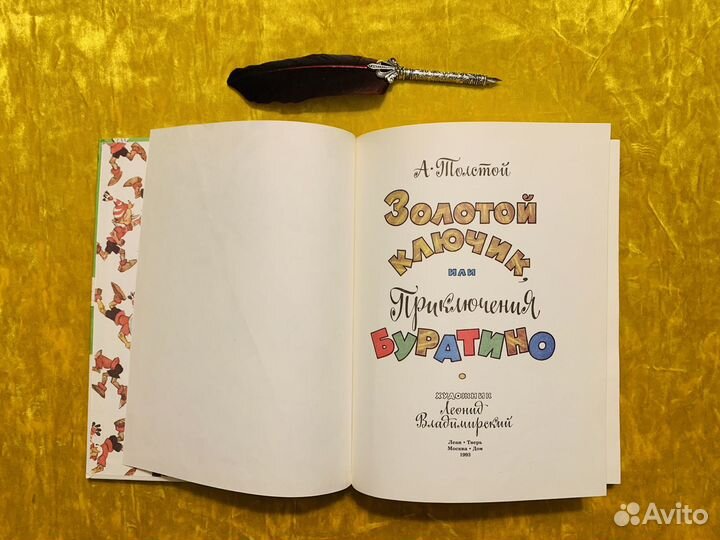 А·Толстой
Золотой
ключик,
или
Приключения
Буратино
Художник
Леонид
Владимирский
Леан • Тверь
Москва • Дом
1993
Avito